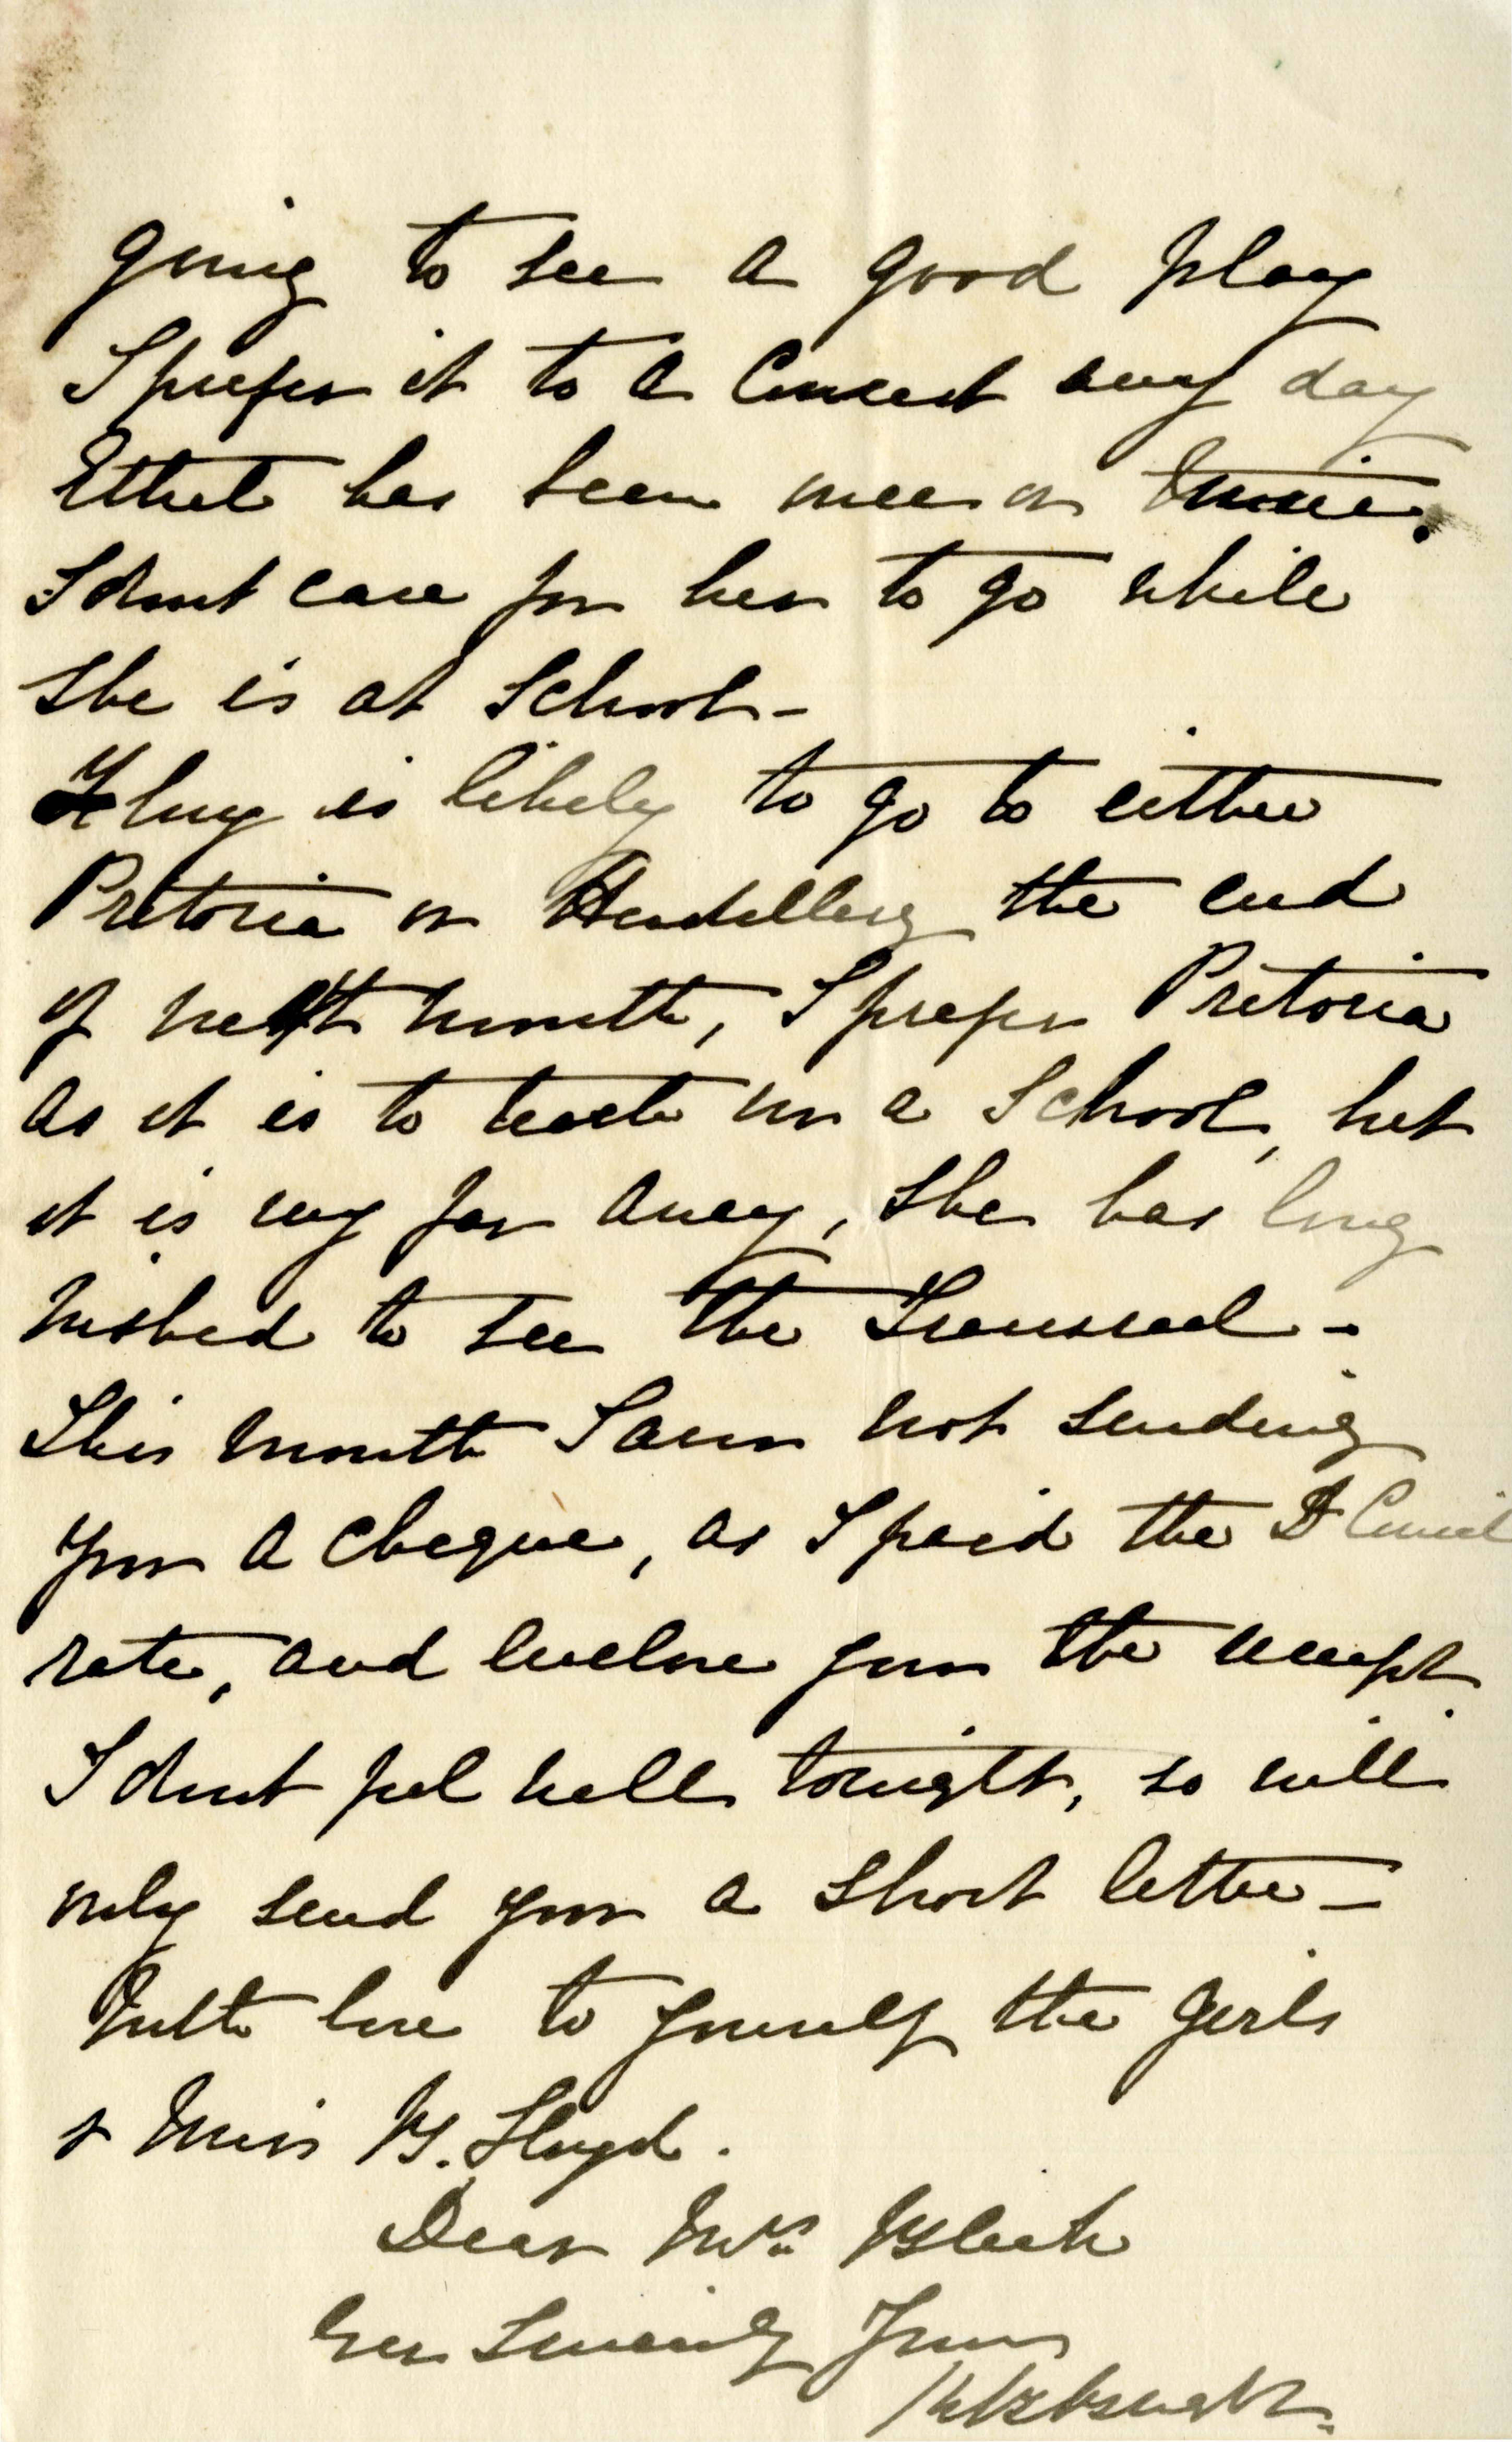 going to see a good play
I prefer it to a Concert any day
Ethel has been once or twice.
I dont care for her to go while
she is at School -
is likely to go to either
Pretoria or Heidelberg the end
of next month, I prefer Pretoria
as it is to teach in a School, but
it is very far away, she has long
wished to see the Transvaal -
This month I am not sending
you a cheque, as I paid the D Council
rate, and enclose you the receipt.
I dont feel well tonight, so will
only send you a short letter -
With love to yourself the girls
& Miss Lloyd.
Dear Mrs Bleek
Ever Sincerely Yours